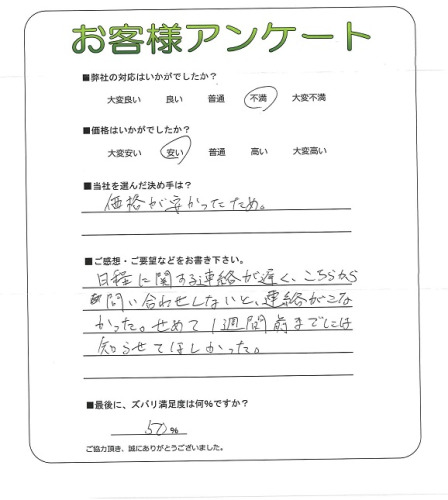 お客様アンケート
■弊社の対応はいかがでしたか?
大変良い 良い 普通 不満 大変不満
■価格はいかがでしたか?
大変安い 安い 普通 高い 大変高い
■当社を選んだ決め手は?
価格が安かったため。
■ご感想・ご要望などをお書き下さい。
日程に関する連絡が遅く、こちらから
問い合わせしないと、連絡がこな
かった。せめて1週間前までには
知らせてほしかった。
■最後に、ズバリ満足度は何%ですか?
50%
ご協力頂き、誠にありがとうございました。